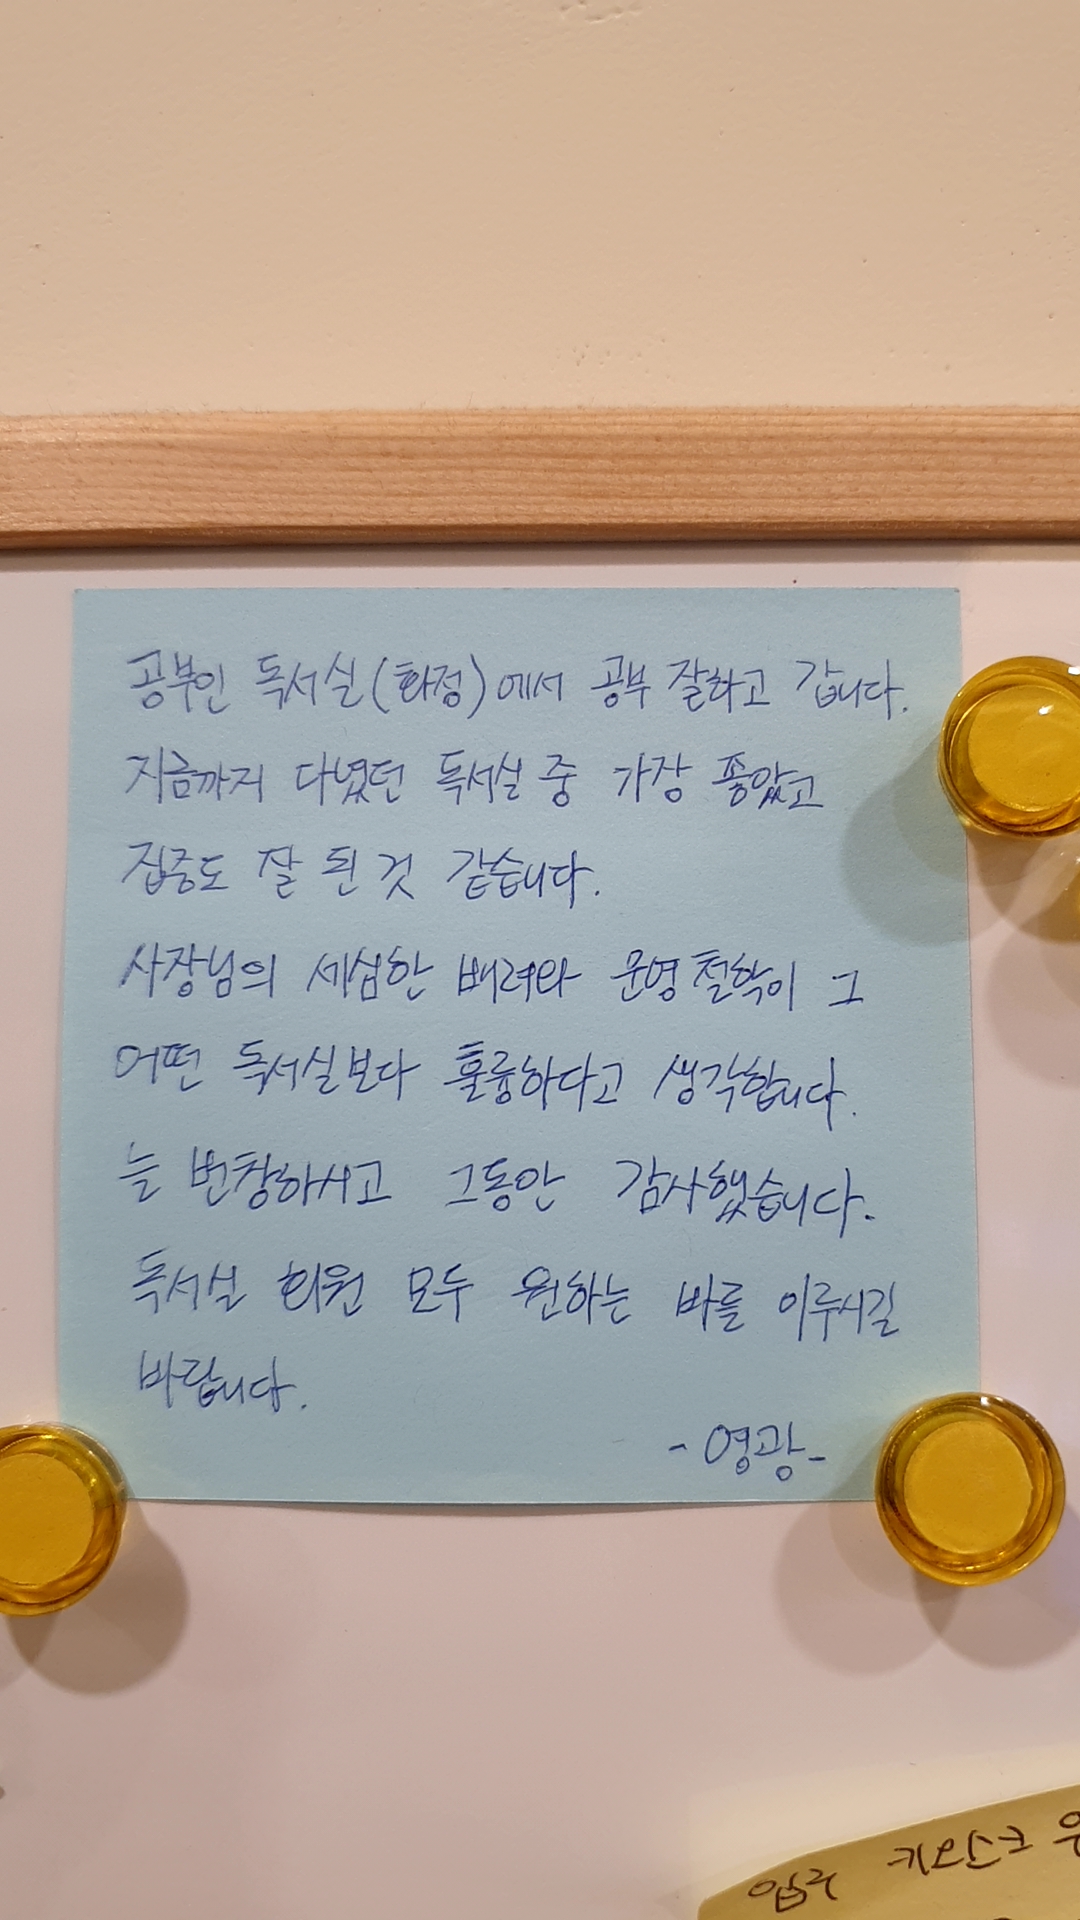 공부인 독서실(화정)에서 공부 잘하고 갑니다.
지금까지 다녔던 독서실 중 가장 좋았고
집중도 잘 된 것 같습니다.
사장님의 세심한 배려와 운영철학이 그
어떤 독서실보다 훌륭하다고 생각합니다.
늘 번창하시고 그동안 감사했습니다.
독서실 회원 모두 원하는 바를 이루시길
바랍니다.
-영광-
입구 키오스크